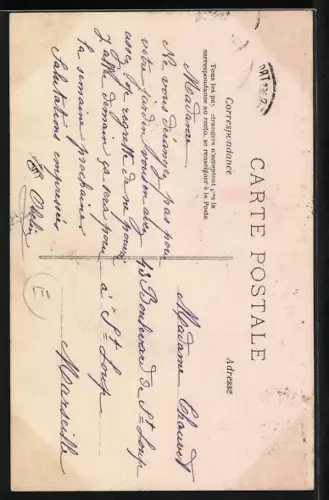 CARTE POSTALE
Correspondance
Adresse
Tous les pays étrangers n'acceptent pas la
correspondance au recto, se renseigner à la Poste.
Madame
Ne vous dérangez pas pour
votre jardin vous en avez
assez je regrette de ne pouvoir
y aller demain ça sera pour
la semaine prochaine
Salutations empressées
Madame Chauvet
43 Boulevard de St Loup
à St Loup
Marseille
E